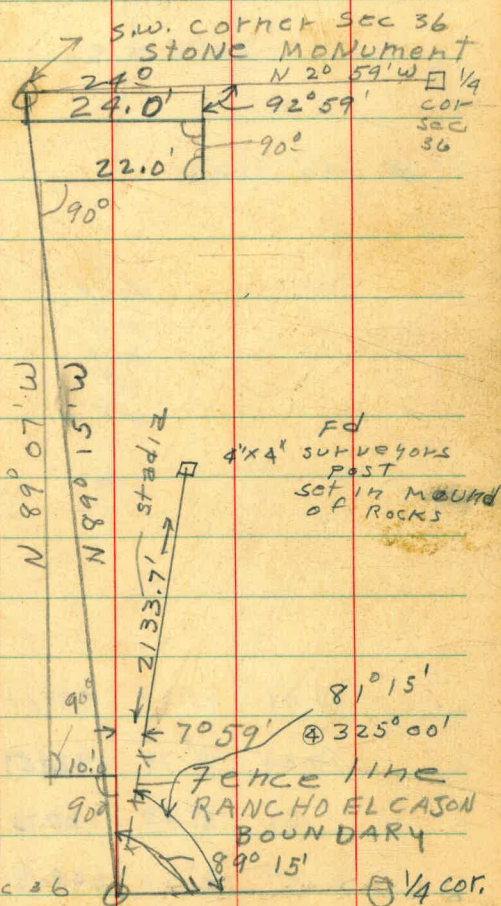 S.W. CORNER SEC 36
STONE MONUMENT
24°
N 2° 59' W
1/4
COR
SEC
36
24.0'
92° 59'
90°
22.0'
90°
N 89° 07' W
N 89° 15' W
2133.7' stadia
Fd
4"x4" surveyors
POST
set in Mound
of Rocks
81° 15'
④ 325° 00'
90°
7° 59'
10.0
Fence line
90°
RANCHO EL CAJON
BOUNDARY
89° 15'
c 36
1/4 cor.